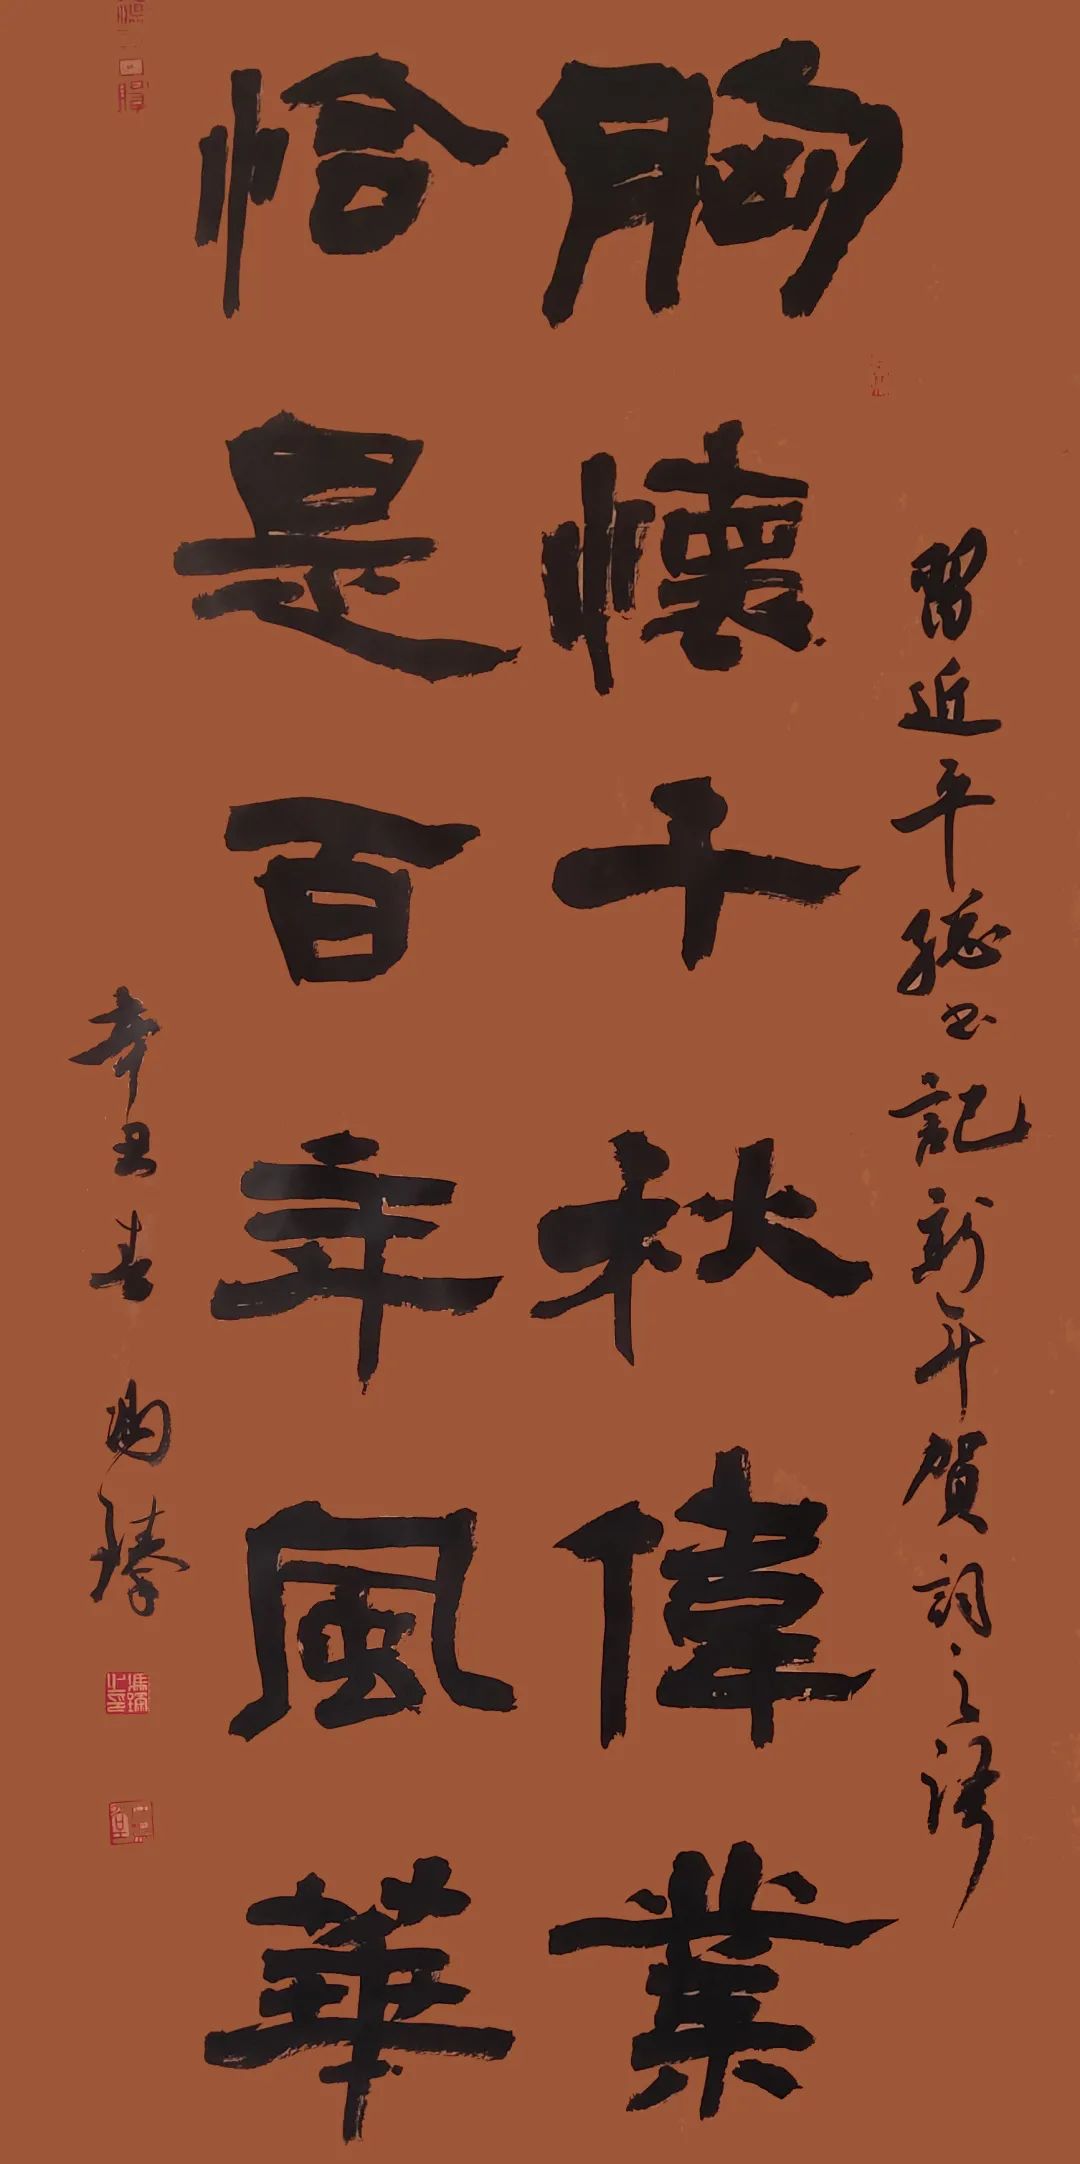 習近平總书記新年賀詞之語
胸懷千秋偉業
恰是百年風華
辛丑春
馮